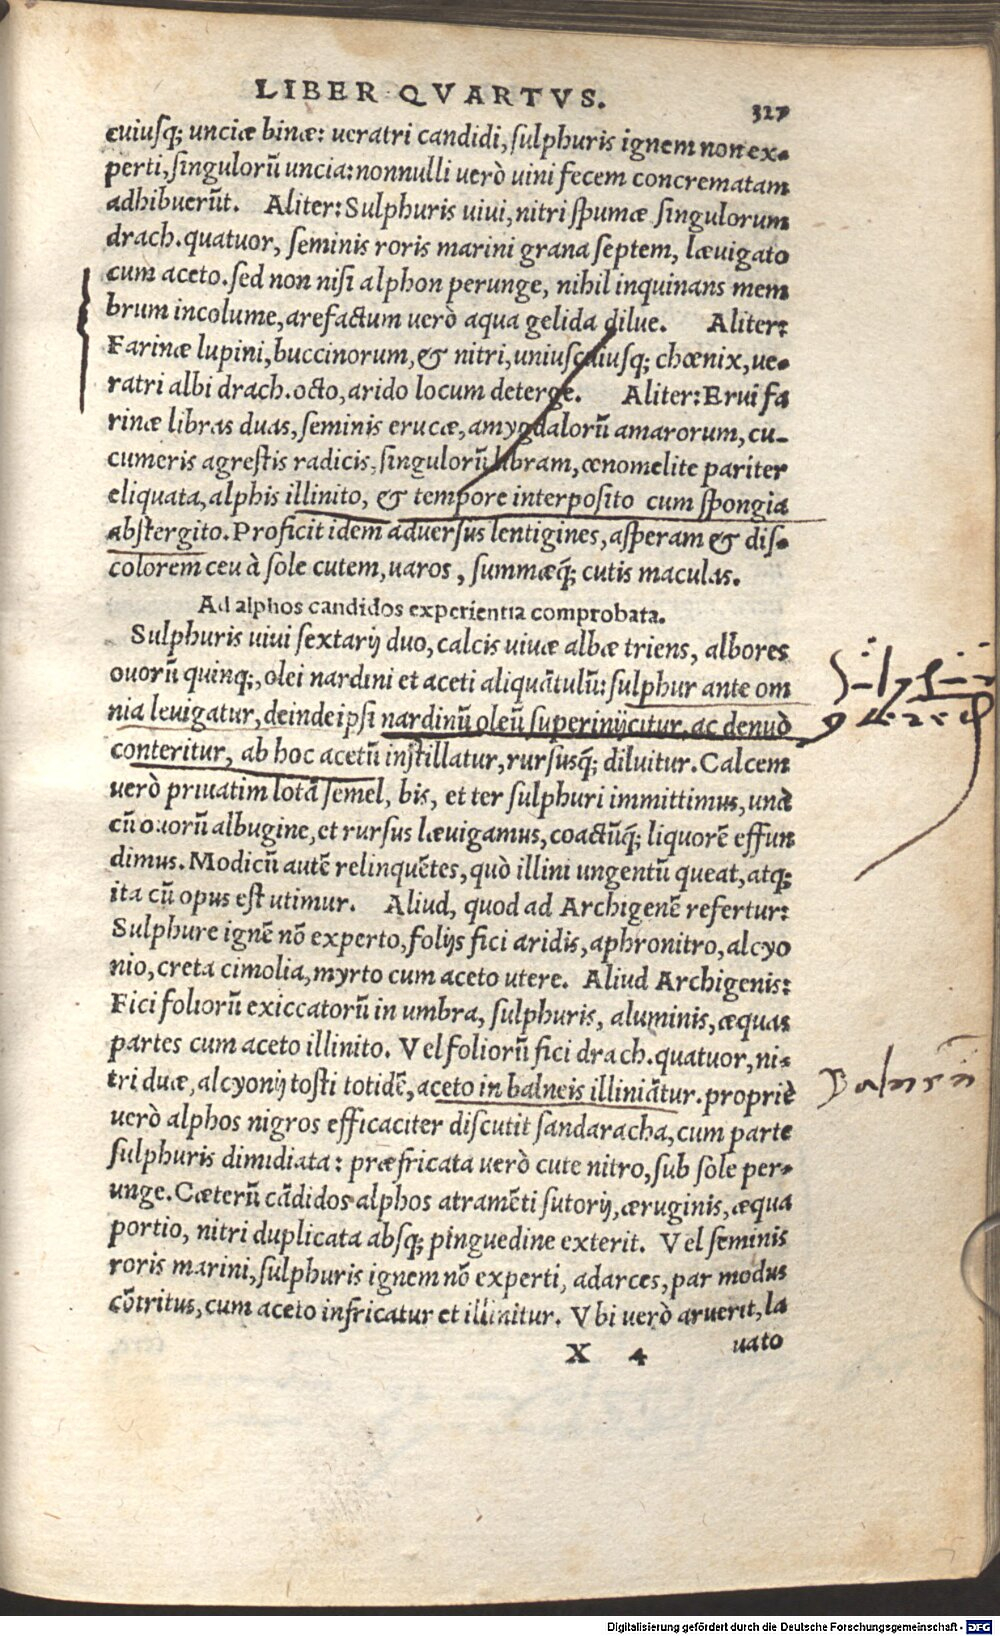 LIBER QVARTVS.
327
cuiusq; unciæ binæ: ueratri candidi, sulphuris ignem non ex-
perti, singulorũ uncia: nonnulli uerò uini fecem concrematam
adhibuerũt. Aliter: Sulphuris uiui, nitri spumæ singulorum
drach. quatuor, seminis roris marini grana septem, læuigato
cum aceto. sed non nisi alphon perunge, nihil inquinans mem
brum incolume, arefactum uerò aqua gelida dilue. Aliter:
Farinæ lupini, buccinorum, & nitri, uniuscuiusq; chœnix, ue-
ratri albi drach. octo, arido locum deterge. Aliter: Erui fa
rinæ libras duas, seminis erucæ, amygdalorũ amarorum, cu-
cumeris agrestis radicis, singulorũ libram, œnomelite pariter
eliquata, alphis illinito, & tempore interposito cum spongia
abstergito. Proficit idem aduersus lentigines, asperam & dis-
colorem ceu à sole cutem, uaros, summæq; cutis maculas.
Ad alphos candidos experientia comprobata.
Sulphuris uiui sextarij duo, calcis uiuæ albæ triens, albores
ouorũ quinq;, olei nardini et aceti aliquãtulũ: sulphur ante om
nia leuigatur, deinde ipsi nardinũ oleũ superinijcitur, ac denuò
conteritur, ab hoc acetũ instillatur, rursusq; diluitur. Calcem
uerò priuatim lotã semel, bis, et ter sulphuri immittimus, unà
cũ ouorũ albugine, et rursus læuigamus, coactũq; liquorẽ effun
dimus. Modicũ autẽ relinquẽtes, quò illini ungentũ queat, atq;
ita cũ opus est utimur. Aliud, quod ad Archigenẽ refertur:
Sulphure ignẽ nõ experto, folijs fici aridis, aphronitro, alcyo
nio, creta cimolia, myrto cum aceto utere. Aliud Archigenis:
Fici foliorũ exiccatorũ in umbra, sulphuris, aluminis, æquas
partes cum aceto illinito. Vel foliorũ fici drach. quatuor, ni-
tri duæ, alcyonij tosti totidẽ, aceto in balneis illiniãtur. propriè
uerò alphos nigros efficaciter discutit sandaracha, cum parte
sulphuris dimidiata: præfricata uerò cute nitro, sub sole per-
unge. Cæterũ cãdidos alphos atramẽti sutorij, æruginis, æqua
portio, nitri duplicata absq; pinguedine exterit. Vel seminis
roris marini, sulphuris ignem nõ experti, adarces, par modus
cõtritus, cum aceto infricatur et illinitur. Vbi uerò aruerit, la
X 4
uato
Digitalisierung gefördert durch die Deutsche Forschungsgemeinschaft - DFG